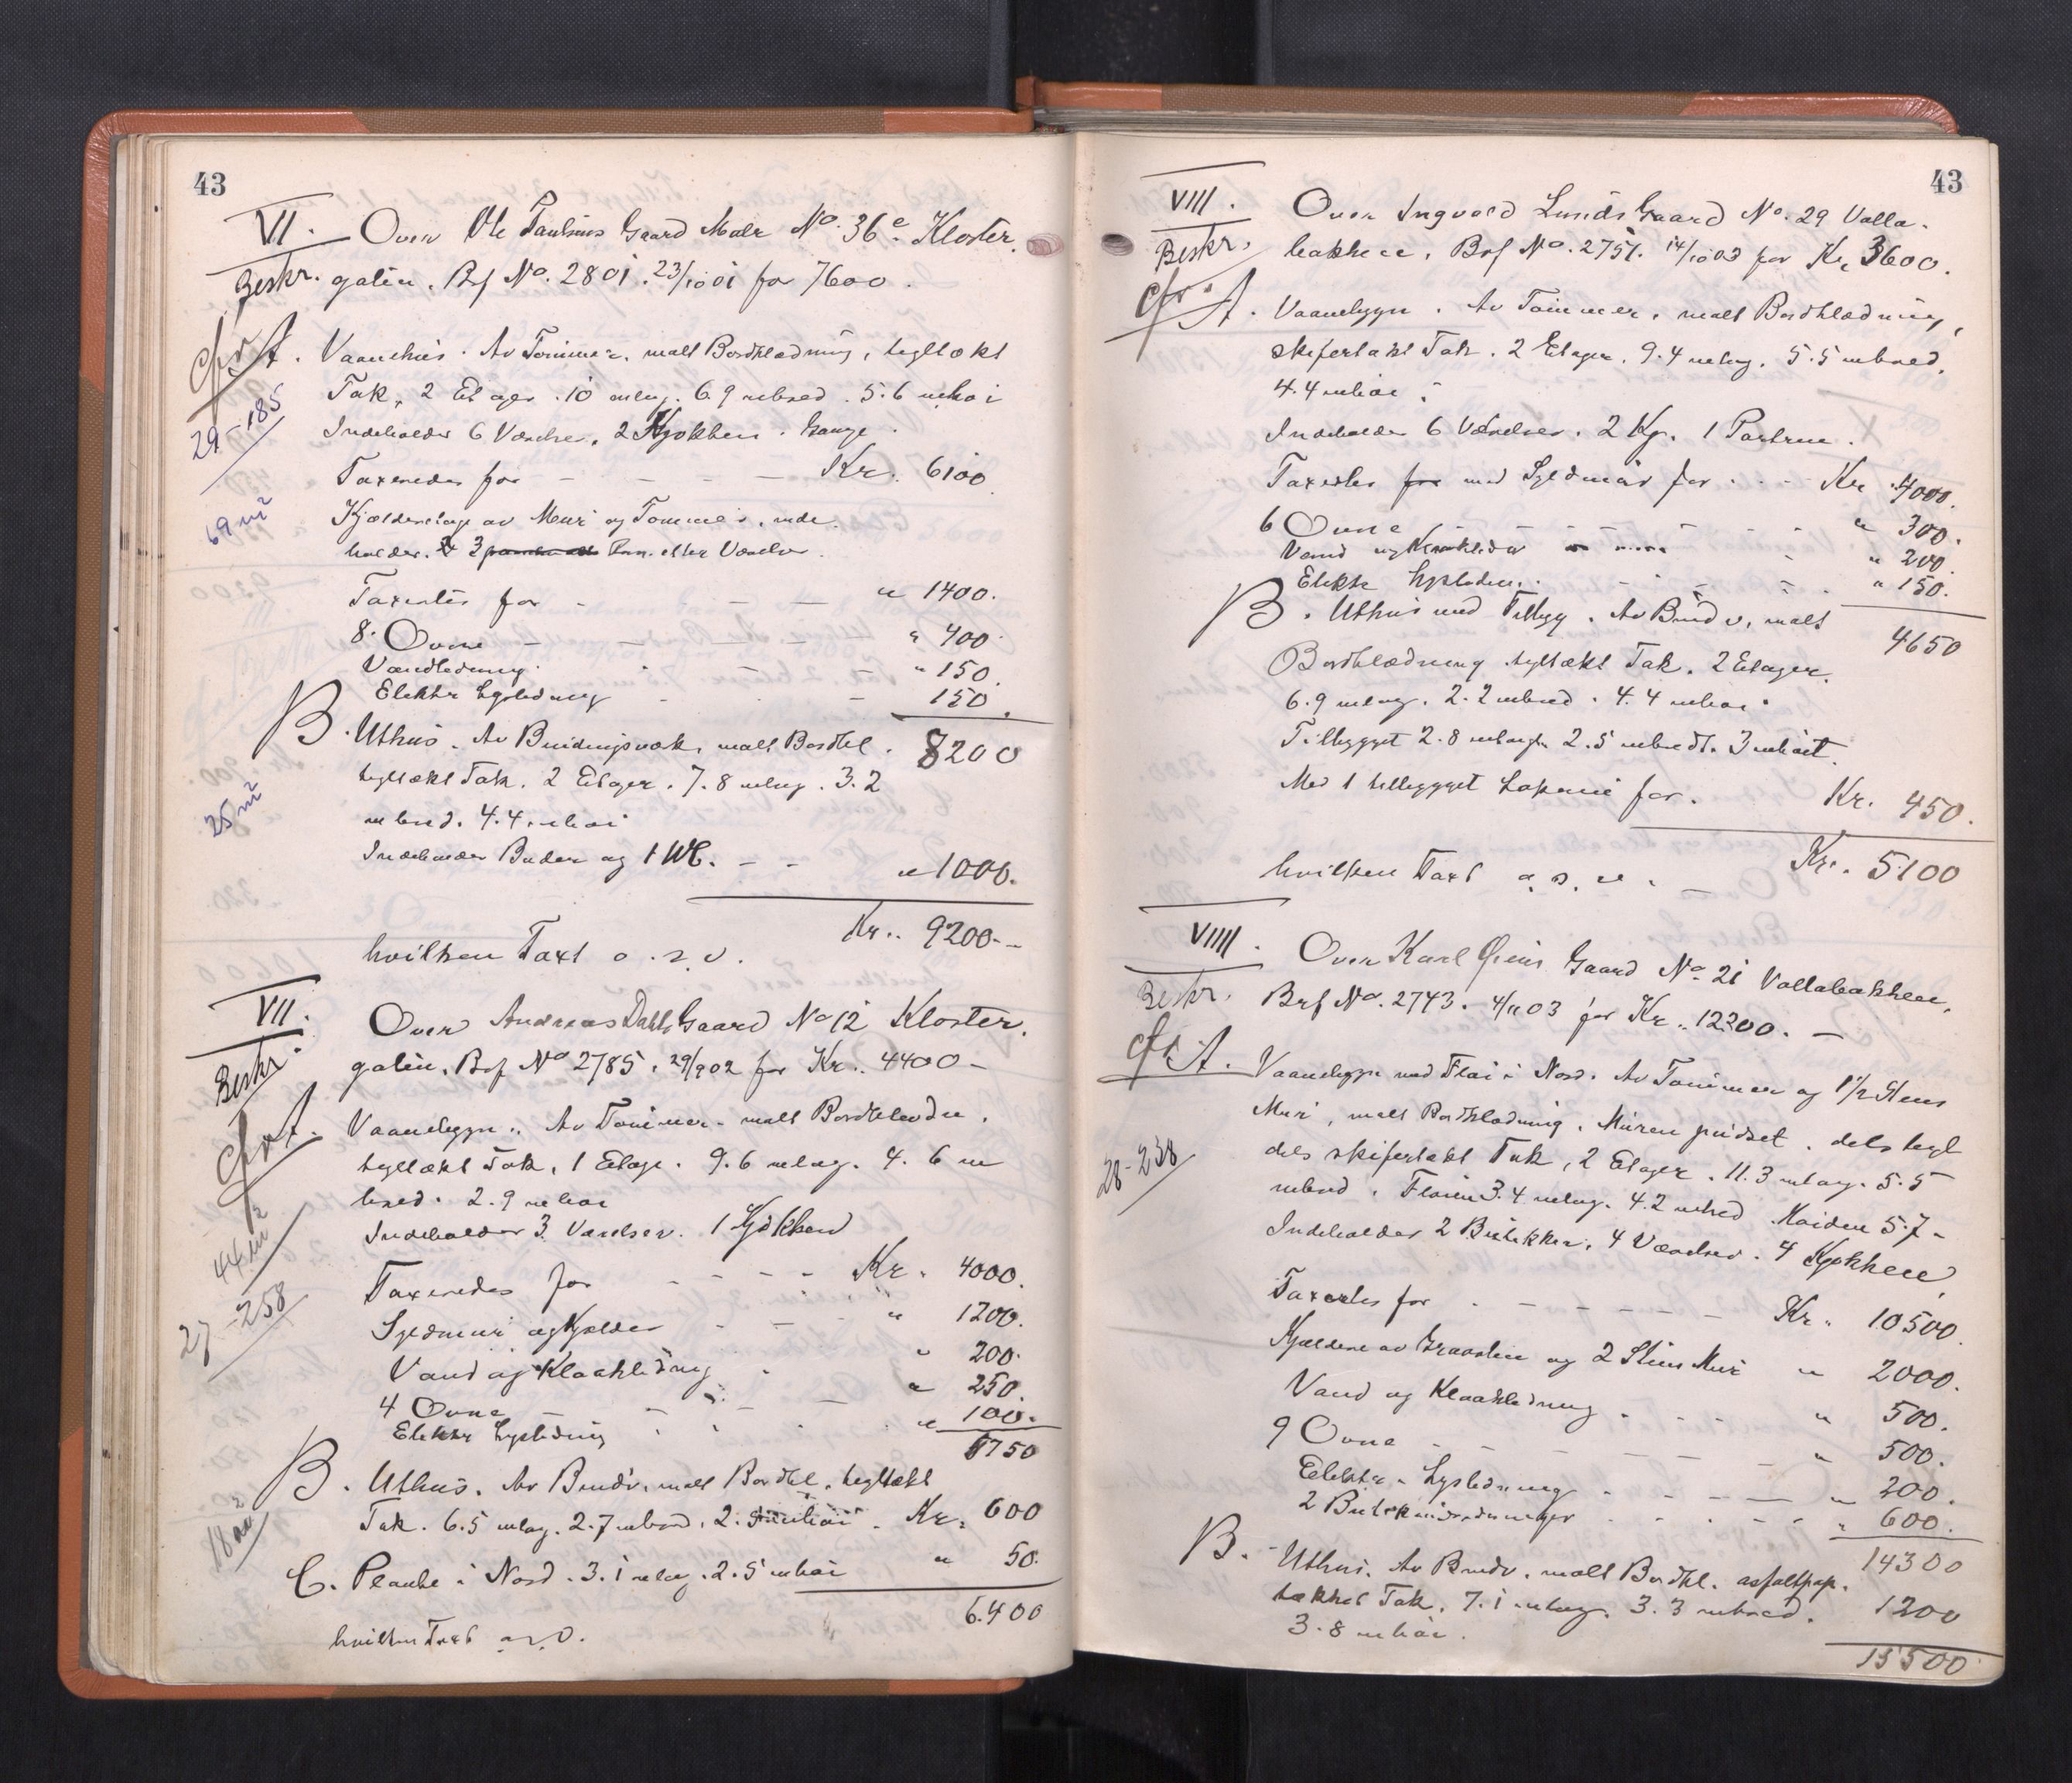 43
VI. Over Ole Paulsens Gaard Matr No. 36e Kloster.
Beskr. gaten, Brf No. 2801. 23/10 01 for 7600.
A. Vaanehus. Av Tømmer, malt Bordklædning, tegltækt
Tak, 2 Etager. 10 m lang. 6.9 m bred. 5.6 m høi
29-185
Indeholder 6 Værelser, 2 Kjøkken. Gange.
Taxeredes for - - - - Kr. 6100
69 m2
Kjælderetage av Mur og Tømmer, inde.
holder. 2 Rum eller Værelser.
Taxertes for - - - " 1400.
8 Ovne - - - " 400
Vandledning - - - " 150.
Elektr Lysledning - - 150.
B. Uthus. Av Bindingsverk, malt Bordkl. 8200
tegltækt Tak. 2 Etager. 7.8 m lang. 3.2
25 m2
m bred. 4.4 m høi
Indeholder Boder og 1 WC. - - " 1000.
Kr. 9200.-
hvilken Taxt o.s.v.
VII. Over Andreas Dahls Gaard No 12 Kloster.
Beskr. gaten, Brf No 2785. 29/9 02 for Kr. 4400-
A. Vaanebygn. Av Tømmer. malt Bordklædn.
tegltækt Tak, 1 Etage. 9.6 m lang. 4.6 m
bred. 2.9 m høi
44 m2
Indeholder 3 Værelser. 1 Kjøkken
Taxeredes for - - - - Kr. 4000.
27-258
Syldmur og Kjælder - - - " 1200.
Vand og Kloakledning - " 200.
4 Ovne - - - - " 250.
Elektr Lysledning - - - " 100.
5750
B. Uthus. Av Bindv. malt Bordkl. tegltækt
Tak. 6.5 m lang. 2.7 m bred. 2. m høi. Kr. 600
18 m2
C. Planke i Nord. 3.1 m lang. 2.5 m høi " 50.
6.400
hvilken Taxt o.s.v.
43
VIII. Over Ingvald Lunds Gaard No. 29 Volla.
Beskr. bakken. Brf No. 2751. 14/10 03 for Kr. 3600.
A. Vaanebygn. Av Tømmer, malt Bordklædning,
skifertækt Tak. 2 Etager. 9.4 m lang. 5.5 m bred.
4.4 m høi.
Indeholder 6 Værelser. 2 Kj. 1
Taxertes for med Syldmur for - - - Kr 4000.
6 Ovne - - - - " 300.
Vand og Kloakledn - " 200.
Elektr Lysledn. - - - " 150.
B. Uthus med Tilbygg. Av Bindv. malt 4650
Bordklædning tegltækt Tak. 2 Etager.
6.9 m lang. 2.2 m bred. 4.4 m høi.
Tilbygget 2.8 m langt. 2.5 m bredt. 3 m høit.
Med 1 tilbygget for. Kr. 450.
hvilken Taxt o.s.v. - Kr. 5100
VIIII. Over Karl Gaard No. 21 Vollabakken,
Beskr. Brf No. 2743. 4/11 03 for Kr. 12200. -
A. Vaanebygn med Fløi i Nord. Av Tømmer og 1 1/2 Stens
Mur, malt Bordklædning. Muren pudset. dels tegl
28-238
dels skifertækt Tak, 2 Etager. 11.3 m lang. 5.5
m bred. Fløien 3.4 m lang. 4.2 m bred Høiden 5.7-
Indeholder 2 Butikker, 4 Værelser. 4 Kjøkken
Taxertes for - - - - - Kr. 10500.
Kjældere av Graasten og 2 Stens Mur " 2000.
Vand og Kloakledning - - - " 500.
9 Ovne - - - - - " 500.
Elektr. Lysledning - - - " 200.
2 Butiksindredninger - - - " 600.
B. Uthus. Av Bindv. malt Bordkl. asfaltpap. 14300
tækket Tak. 7.1 m lang. 3.3 m bred. 1200
3.8 m høi.
15500